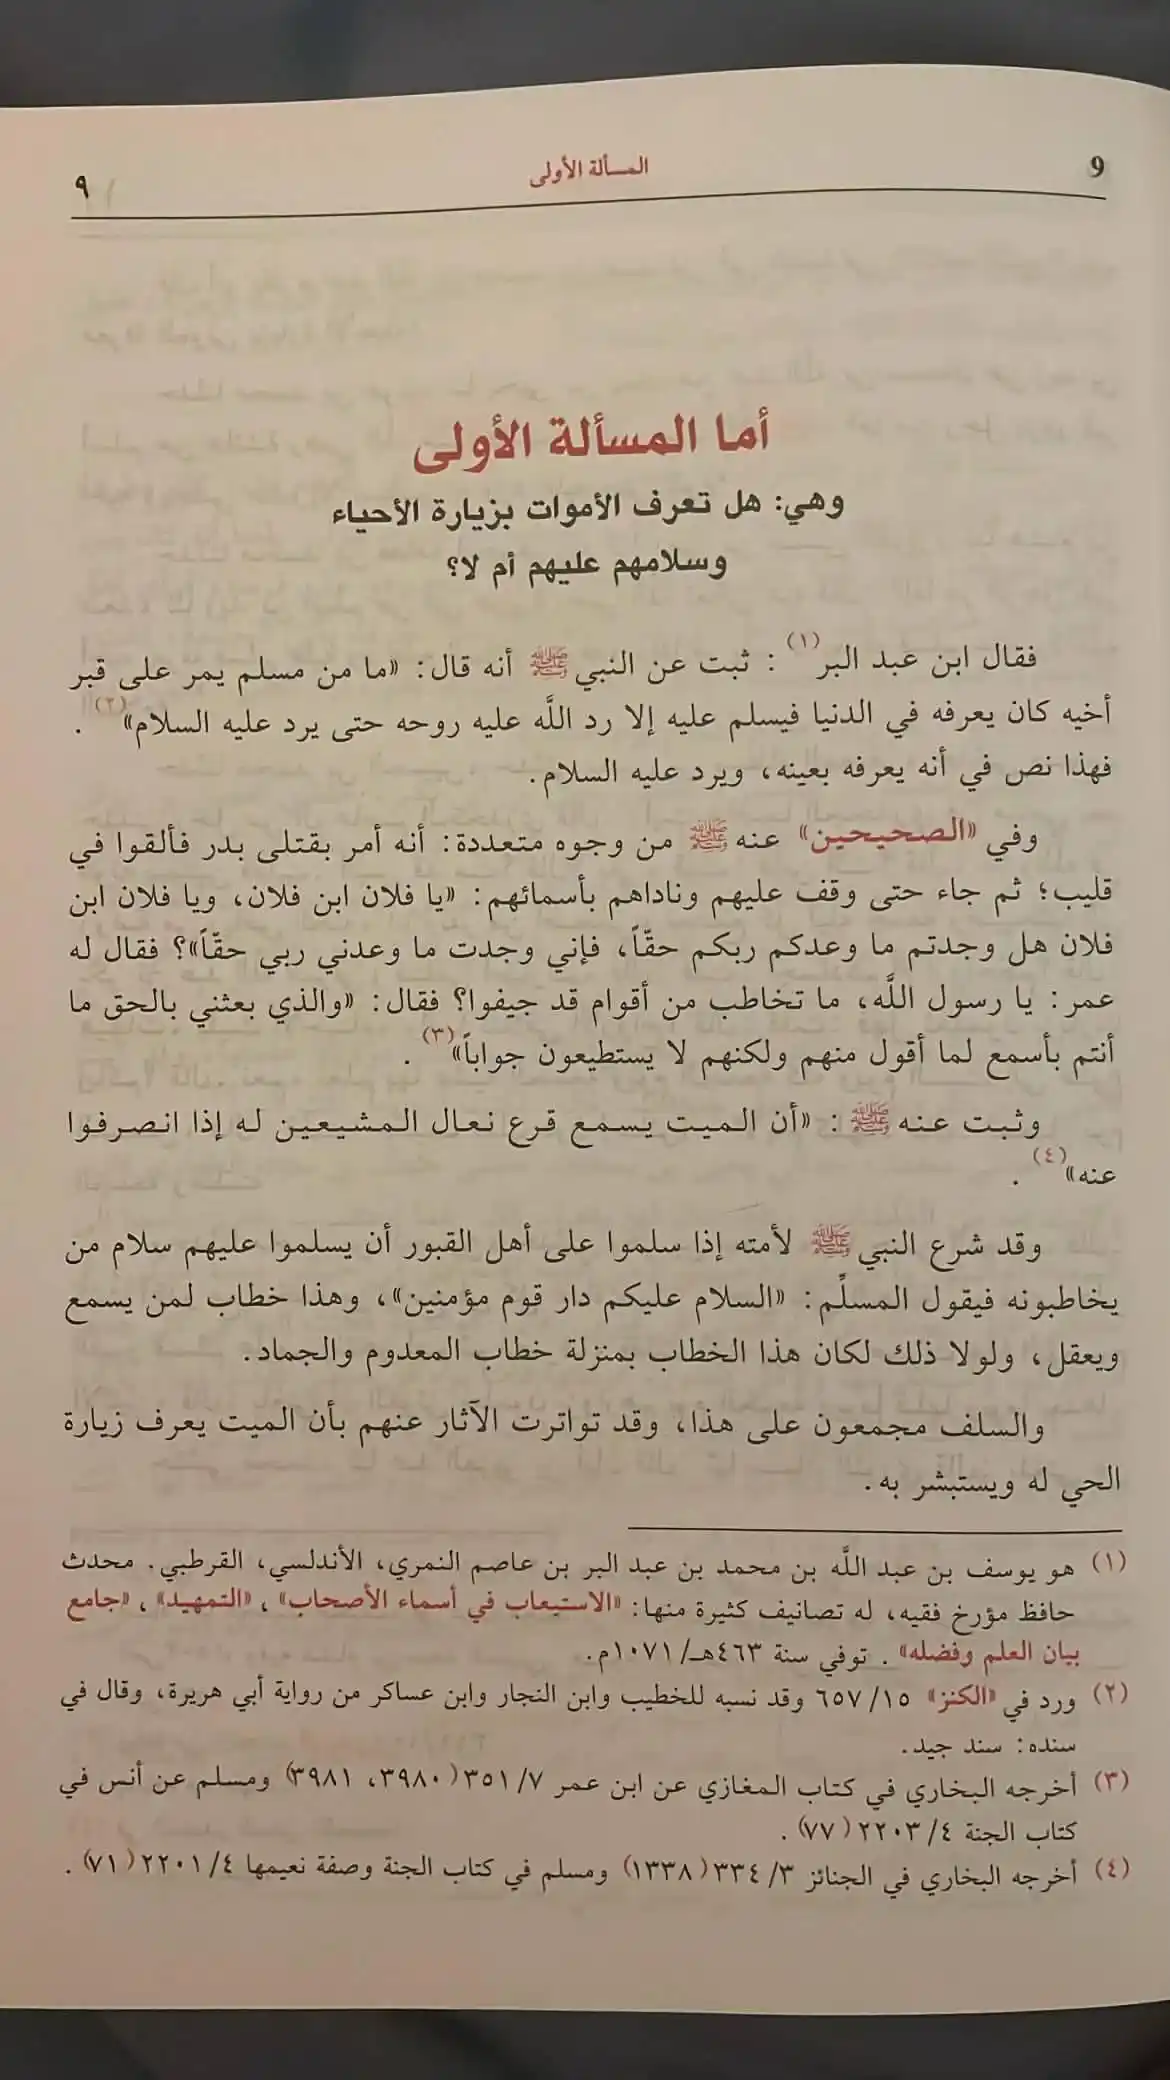 9 المسألة الأولى ٩
أما المسألة الأولى
وهي: هل تعرف الأموات بزيارة الأحياء
وسلامهم عليهم أم لا؟
فقال ابن عبد البر(١): ثبت عن النبي ﷺ أنه قال: «ما من مسلم يمر على قبر
أخيه كان يعرفه في الدنيا فيسلم عليه إلا رد اللَّه عليه روحه حتى يرد عليه السلام»(٢).
فهذا نص في أنه يعرفه بعينه، ويرد عليه السلام.
وفي «الصحيحين» عنه ﷺ من وجوه متعددة: أنه أمر بقتلى بدر فألقوا في
قليب؛ ثم جاء حتى وقف عليهم وناداهم بأسمائهم: «يا فلان ابن فلان، ويا فلان ابن
فلان هل وجدتم ما وعدكم ربكم حقّاً، فإني وجدت ما وعدني ربي حقّاً»؟ فقال له
عمر: يا رسول اللَّه، ما تخاطب من أقوام قد جيفوا؟ فقال: «والذي بعثني بالحق ما
أنتم بأسمع لما أقول منهم ولكنهم لا يستطيعون جواباً»(٣).
وثبت عنه ﷺ: «أن الميت يسمع قرع نعال المشيعين له إذا انصرفوا
عنه»(٤).
وقد شرع النبي ﷺ لأمته إذا سلموا على أهل القبور أن يسلموا عليهم سلام من
يخاطبونه فيقول المسلِّم: «السلام عليكم دار قوم مؤمنين»، وهذا خطاب لمن يسمع
ويعقل، ولولا ذلك لكان هذا الخطاب بمنزلة خطاب المعدوم والجماد.
والسلف مجمعون على هذا، وقد تواترت الآثار عنهم بأن الميت يعرف زيارة
الحي له ويستبشر به.
(١) هو يوسف بن عبد اللَّه بن محمد بن عبد البر بن عاصم النمري، الأندلسي، القرطبي. محدث
حافظ مؤرخ فقيه، له تصانيف كثيرة منها: «الاستيعاب في أسماء الأصحاب»، «التمهيد»، «جامع
بيان العلم وفضله». توفي سنة ٤٦٣هـ/١٠٧١م.
(٢) ورد في «الكنز» ٦٥٧/١٥ وقد نسبه للخطيب وابن النجار وابن عساكر من رواية أبي هريرة، وقال في
سنده: سند جيد.
(٣) أخرجه البخاري في كتاب المغازي عن ابن عمر ٣٥١/٧(٣٩٨٠، ٣٩٨١) ومسلم عن أنس في
كتاب الجنة ٢٢٠٣/٤ (٧٧).
(٤) أخرجه البخاري في الجنائز ٣٣٤/٣(١٣٣٨) ومسلم في كتاب الجنة وصفة نعيمها ٢٢٠١/٤(٧١).